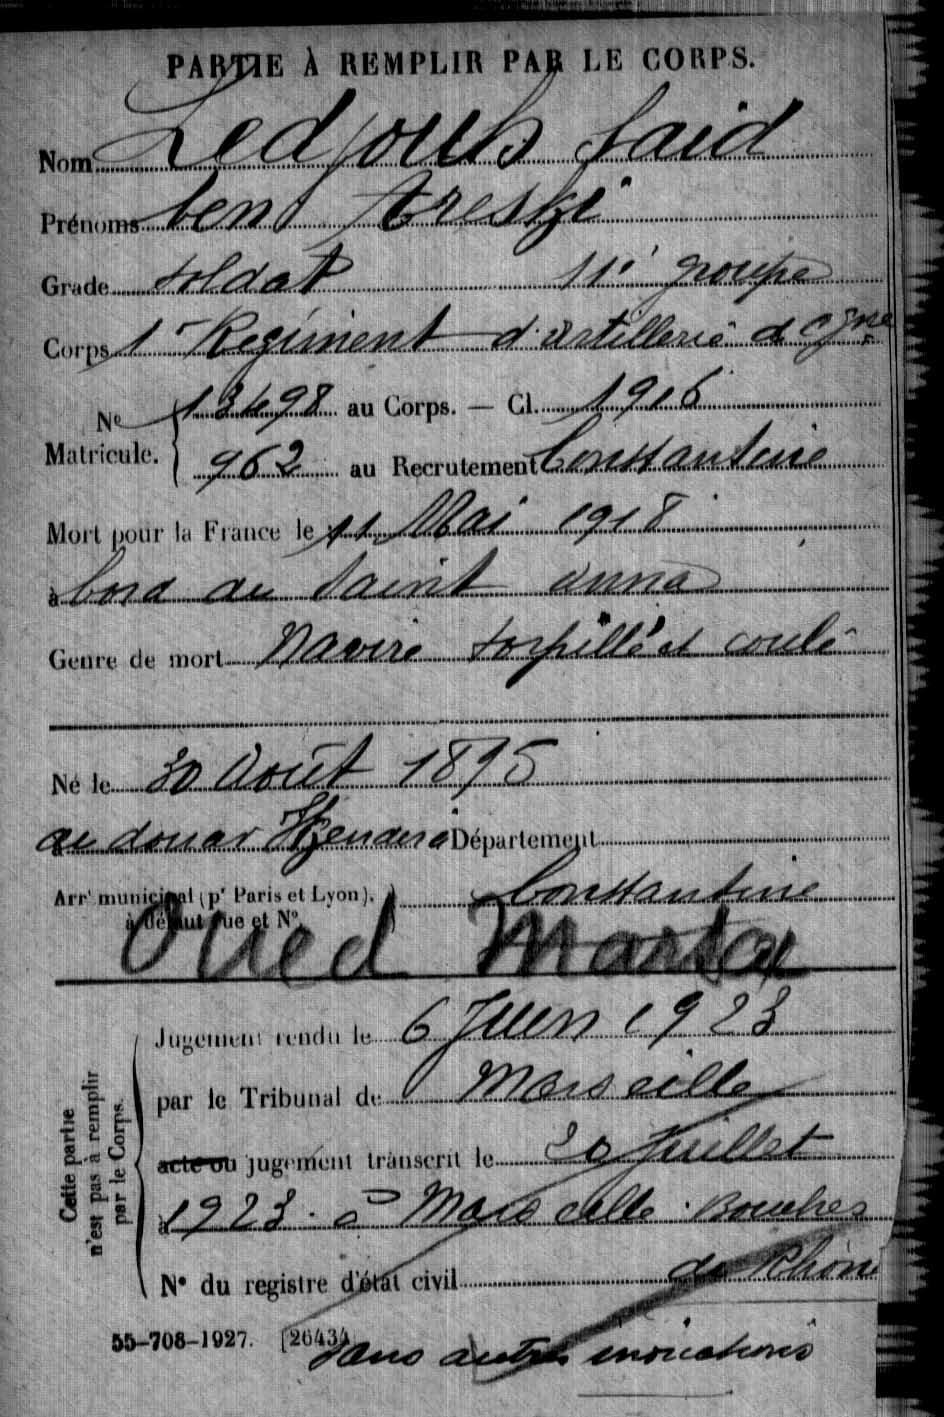 PARTIE À REMPLIR PAR LE CORPS.
Nom Ledjoub Said
Prénoms ben Areski
Grade soldat 11e groupe
Corps 1er Régiment d'artillerie de
No Matricule. 13498 au Corps. — Cl. 1916
962 au Recrutement Constantine
Mort pour la France le 11 Mai 1918
à bord du Saint anna
Genre de mort Navire torpillé et coulé
Né le 30 Août 1895
au douar Département
Arrt municipal (pr Paris et Lyon), Constantine
à défaut rue et No.
Oued Marsa
Cette partie n'est pas à remplir par le Corps.
Jugement rendu le 6 Juin 1923
par le Tribunal de Marseille
acte ou jugement transcrit le 20 Juillet
à 1923 à Marseille Bouches
No du registre d'état civil du Rhône
55-708-1927. [26434]
sans autres indications